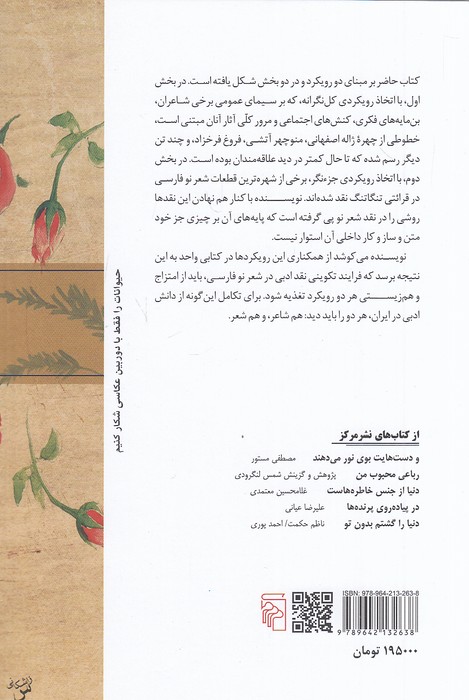 کتاب حاضر بر مبنای دو رویکرد و در دو بخش شکل یافته است. در بخش
اول، با اتخاذ رویکردی کل‌نگرانه، که بر سیمای عمومی برخی شاعران،
بن‌مایه‌های فکری، کنش‌های اجتماعی و مرور کلّی آثار آنان مبتنی است،
خطوطی از چهرهٔ ژاله اصفهانی، منوچهر آتشی، فروغ فرخزاد، و چند تن
دیگر رسم شده که تا حال کمتر در دید علاقه‌مندان بوده است. در بخش
دوم، با اتخاذ رویکردی جزءنگر، برخی از شهره‌ترین قطعات شعر نو فارسی
در قرائتی تنگاتنگ نقد شده‌اند. نویسنده با کنار هم نهادن این نقدها
روشی را در نقد شعر نو پی گرفته است که پایه‌های آن بر چیزی جز خود
متن و ساز و کار داخلی آن استوار نیست.
نویسنده می‌کوشد از همکناری این رویکردها در کتابی واحد به این
نتیجه برسد که فرایند تکوینی نقد ادبی در شعر نو فارسی، باید از امتزاج
و هم‌زیستی هر دو رویکرد تغذیه شود. برای تکامل این‌گونه از دانش
ادبی در ایران، هر دو را باید دید: هم شاعر، و هم شعر.
حیوانات را فقط با دوربین عکاسی شکار کنیم
از کتاب‌های نشرمرکز
و دست‌هایت بوی نور می‌دهند مصطفی مستور
رباعی محبوب من پژوهش و گزینش شمس لنگرودی
دنیا از جنس خاطره‌هاست غلامحسین معتمدی
در پیاده‌روی پرنده‌ها علیرضا عباسی
دنیا را گشتم بدون تو ناظم حکمت/ احمد پوری
ISBN: 978-964-213-263-8
9 789642 132638
۱۹۵۰۰۰ تومان